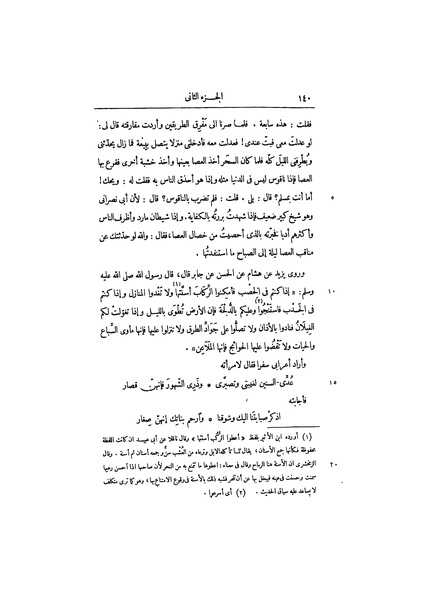 ١٤٠ الجزء الثانى
فقلت : هذه سابعة . فلما صرنا الى مَفْرِق الطريقين وأردت مفارقته قال لى :
لو عدلتَ معى فبتَّ عندى ! فعدلت معه فأدخلنى منزلا يتصل بِبِيعة فما زال يحدّثنى
ويُطرِفنى الليلَ كلَّه فلما كان السحَر أخذ العصا بعينها وأخذ خشبة أخرى فقرع بها
العصا فإذا ناقوس ليس فى الدنيا مثله وإذا هو أحذق الناس به فقلت له : ويحك !
٥ أما أنت بمسلم ؟ قال : بلى . قلت : فلم تضرب بالناقوس ؟ قال : لأن أبى نصرانى
وهو شيخ كبير ضعيف فإذا شهدتُّ بررتُه بالكفاية . وإذا شيطان مارد وأظرف الناس
وأكثرهم أدبا فخبّرته بالذى أحصيتُ من خصال العصا، فقال : والله لو حدّثتك عن
مناقب العصا ليلة إلى الصباح ما استنفدتُها .
وروى يزيد عن هشام عن الحسن عن جابر قال، قال رسول الله صلى الله عليه
١٠ وسلم : «إذا كنتم فى الخصب فأمكِنوا الرِّكابَ أسنّتَها (١) ولا تَعْدوا المنازل وإذا كنتم
فى الجَدْب فاستنجُوا (٢) وعليكم بالدُّلجة فإن الأرض تُطْوَى بالليل وإذا تغوّلت لكم
الغِيلان فنادوا بالأذان ولا تصلّوا على جَوَادّ الطرق ولا تنزلوا عليها فإنها مأوى السِّباع
والحيات ولا تَقْضُوا عليها الحوائج فإنها الملاعِن» .
وأراد أعرابى سفرا فقال لامرأته
١٥ عُدِّى السنين لغيبتى وتصبَّرى * وذَرِى الشهورَ فإنهنّ قصار
فأجابته
اذكر صبابتَنا اليك وشوقَنا * وارحم بناتِك إنهنّ صِغار
(١) أورده ابن الأثير بلفظ «أعطوا الرُّكُب أسنتها» وقال ناقلا عن أبى عبيد ان كانت اللفظة
محفوظة فكأنها جمع الأسنان، يقال لما تأكله الابل وترعاه من العُشْب سنّ وجمعه أسنان ثم أسنة . وقال
٢٠ الزمخشرى ان الأسنة هنا الرماح وقال فى معناه : اعطوها ما تمتنع به من النحر لأن صاحبها اذا أحسن رعيها
سمنت وحسنت فى عينه فيبخل بها عن أن تنحر فشبه ذلك بالأسنة فى وقوع الامتناع بها، وهو كما ترى متكلف
لا يساعد عليه سياق الحديث . (٢) أى أسرعوا .